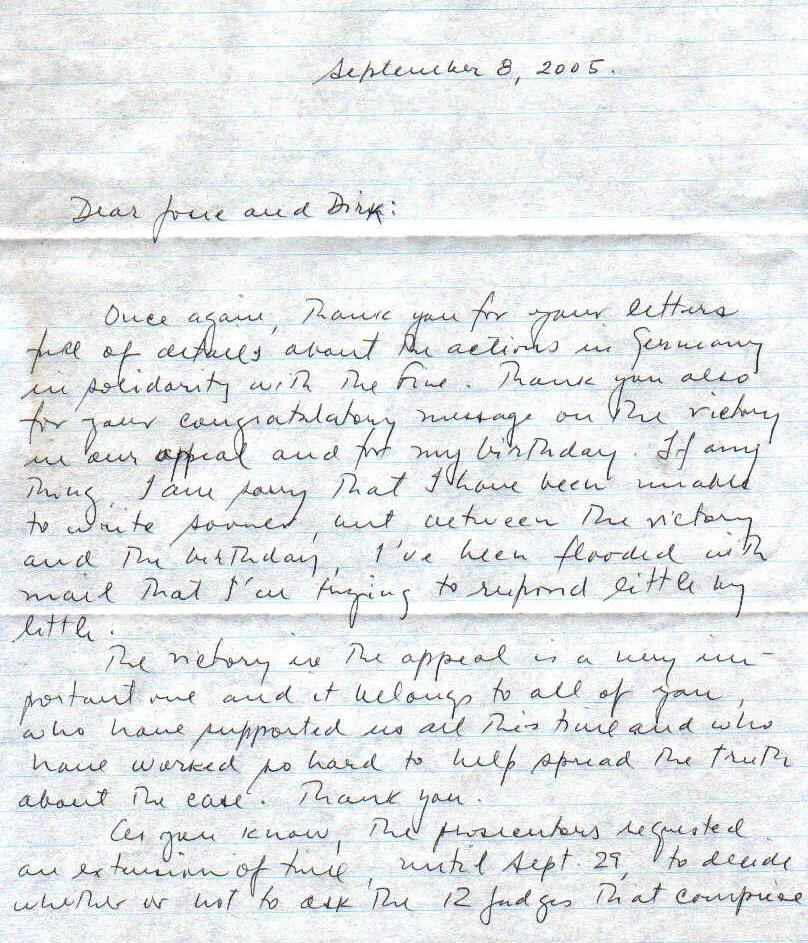 September 8, 2005.
Dear Josie and Dirk:
Once again, Thank you for your letters
full of details about the actions in Germany
in solidarity with the Five. Thank you also
for your congratulatory message on the victory
in our appeal and for my birthday. If any
thing, I am sorry that I have been unable
to write sooner, but between the victory
and the birthday, I've been flooded with
mail that I'm trying to respond little by
little.
The victory in the appeal is a very im-
portant one and it belongs to all of you,
who have supported us all this time and who
have worked so hard to help spread the truth
about the case. Thank you.
As you know, the prosecutors requested
an extension of time, until Sept. 29, to decide
whether or not to ask the 12 judges that comprise